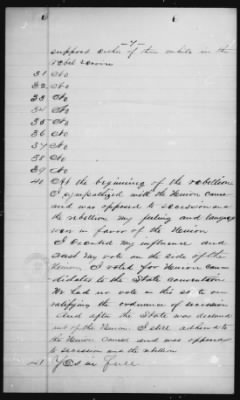 -7-
support either of them while in the
rebel service
31 No
32 No
33 No
34 No
35 No
36 No
37 No
38 No
39 No
40 At the beginning of the rebellion
I sympathized with the Union Cause
and was opposed to secession and
the rebellion my feeling and language
was in favor of the Union
I exerted my influence and
cast my vote on the side of the
Union, I voted for Union Can-
didates to the State convention
We had no vote in this as to our
ratifying the ordinance of secession
And after the State was declared
out of the Union I still adhered to
the Union Cause and was opposed
to secession and the rebellion
41 Yes in full